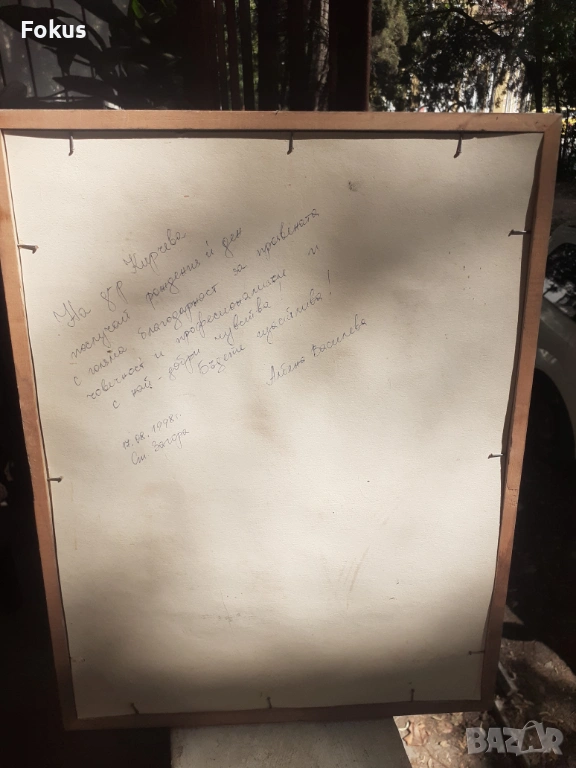 Fokus
На д-р Кирчева
послучай рождения ѝ ден
с голяма благодарност за проявената
човечност и професионализъм и
с най-добри чувства!
Бъдете щастлива!
Антина Василева
17.08.1998г.
Ст. Загора
BAZAR